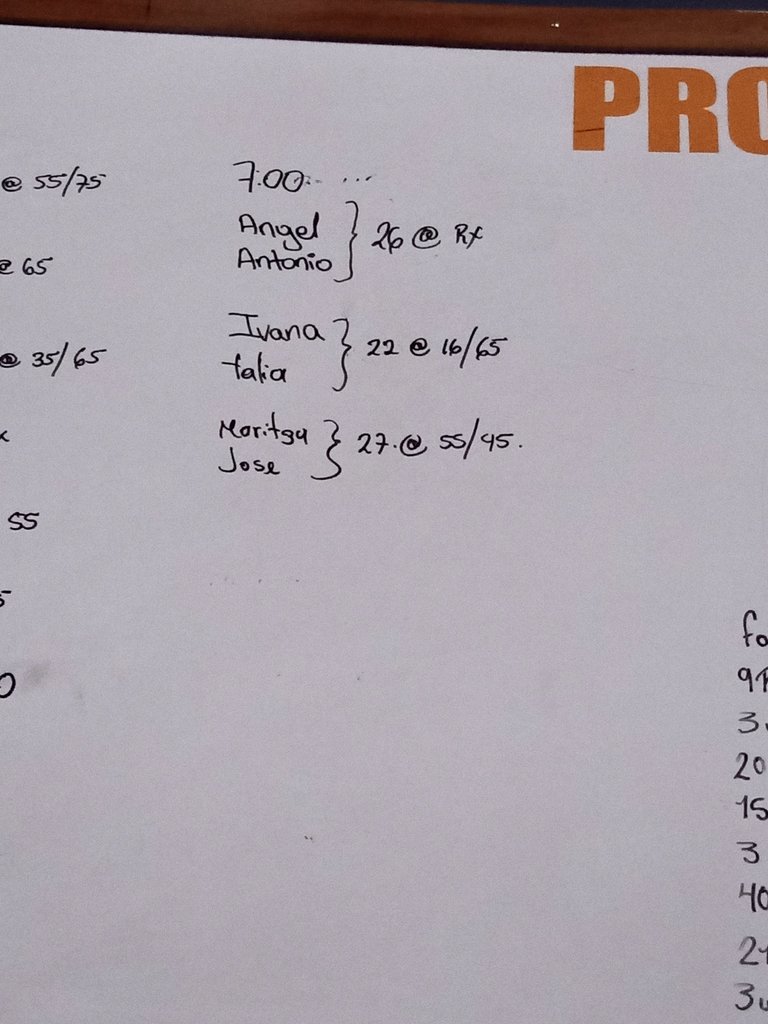 PRO
@ 55/75
@ 65
@ 35/65
55
7:00
Angel
Antonio } 26 @ Rx
Ivana
talia } 22 @ 16/65
Maritza
Jose } 27.@ 55/45.
3
20
15
3
40
21
3